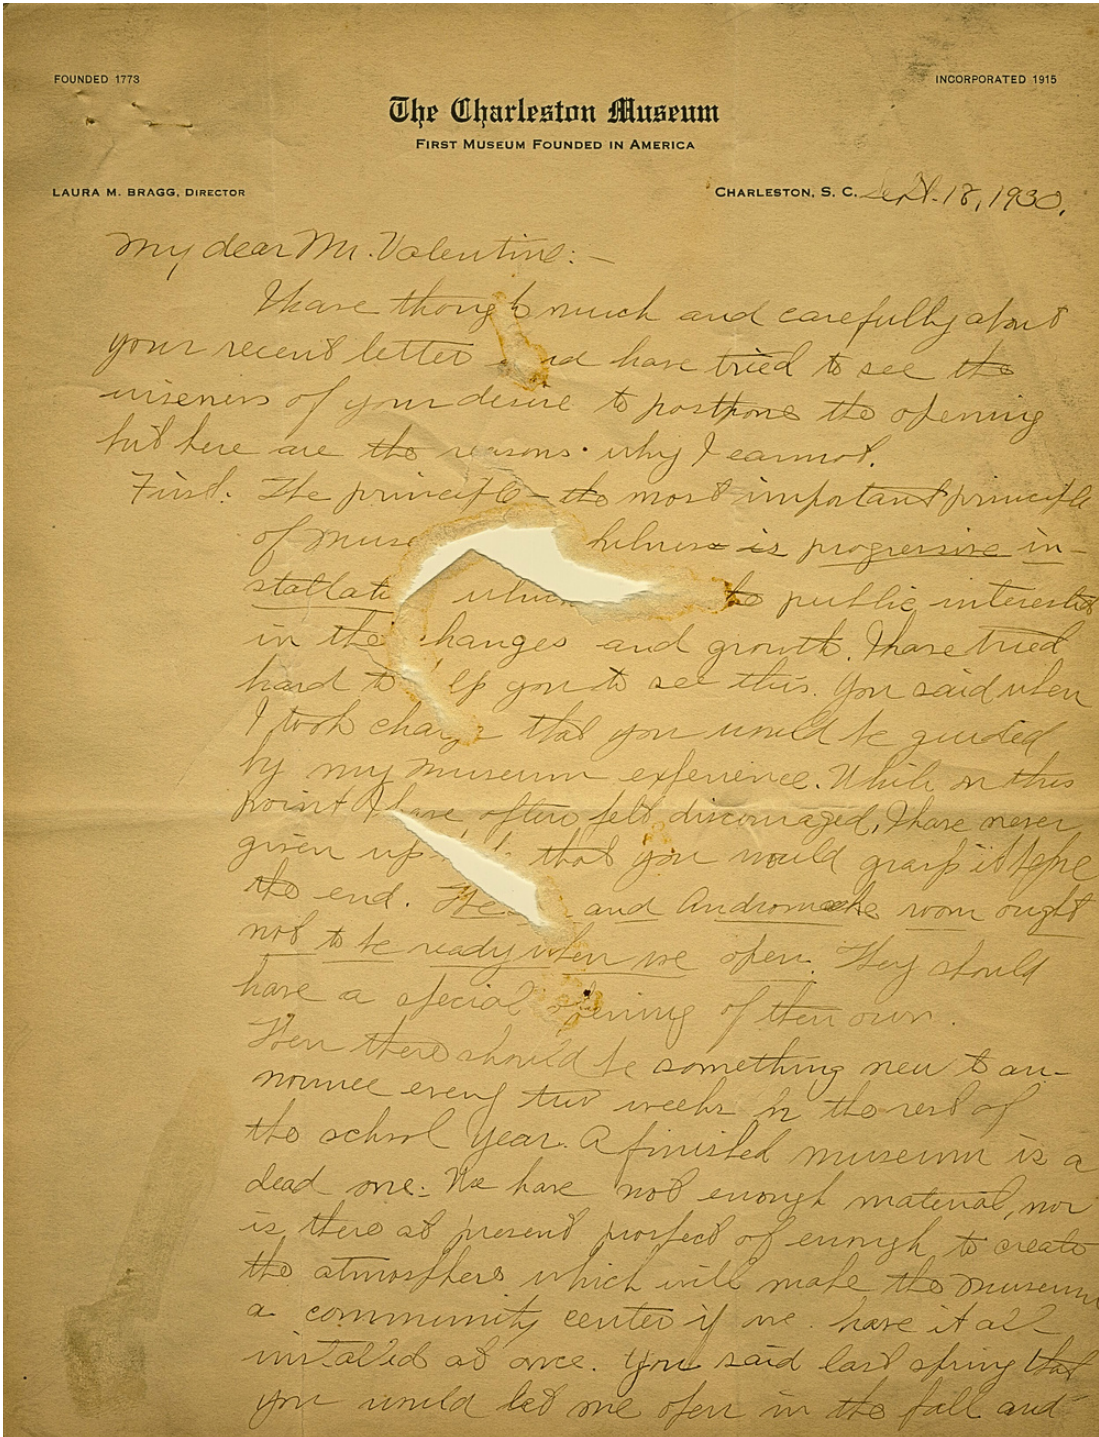 FOUNDED 1773
INCORPORATED 1915
The Charleston Museum
FIRST MUSEUM FOUNDED IN AMERICA
LAURA M. BRAGG, DIRECTOR
CHARLESTON, S. C. Sept. 18, 1930.
My dear Mr. Valentine:-
I have though much and carefully about
your recent letter and have tried to see the
wiseness of your desire to postpone the opening
but here are the reasons why I cannot.
First. The principle - the most important principle
of muse is progressive in-
stallati which public interested
in the changes and growth. I have tried
hard to help you to see this. You said when
I took charge that you would be guided
by my museum experience. While on this
point I have often felt discouraged, I have never
given up that you would grasp it before
the end. The and Andromache room ought
not to be ready when we open. They should
have a special opening of their own.
Then there should be something new to an-
nounce every two weeks for the rest of
the school year. A finished museum is a
dead one. We have not enough material, nor
is there at present prospect of enough to create
the atmosphere which will make the museum
a community center if we have it all
installed at once. You said last spring that
you would let me open in the fall and